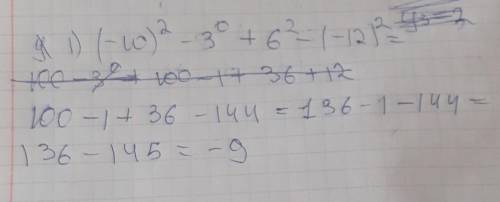 1) (-10)² - 3⁰ + 6² - (-12)² =
100 - 3⁰ + 100 - 1 + 36 + 12
100 - 1 + 36 - 144 = 136 - 1 - 144 =
136 - 145 = -9